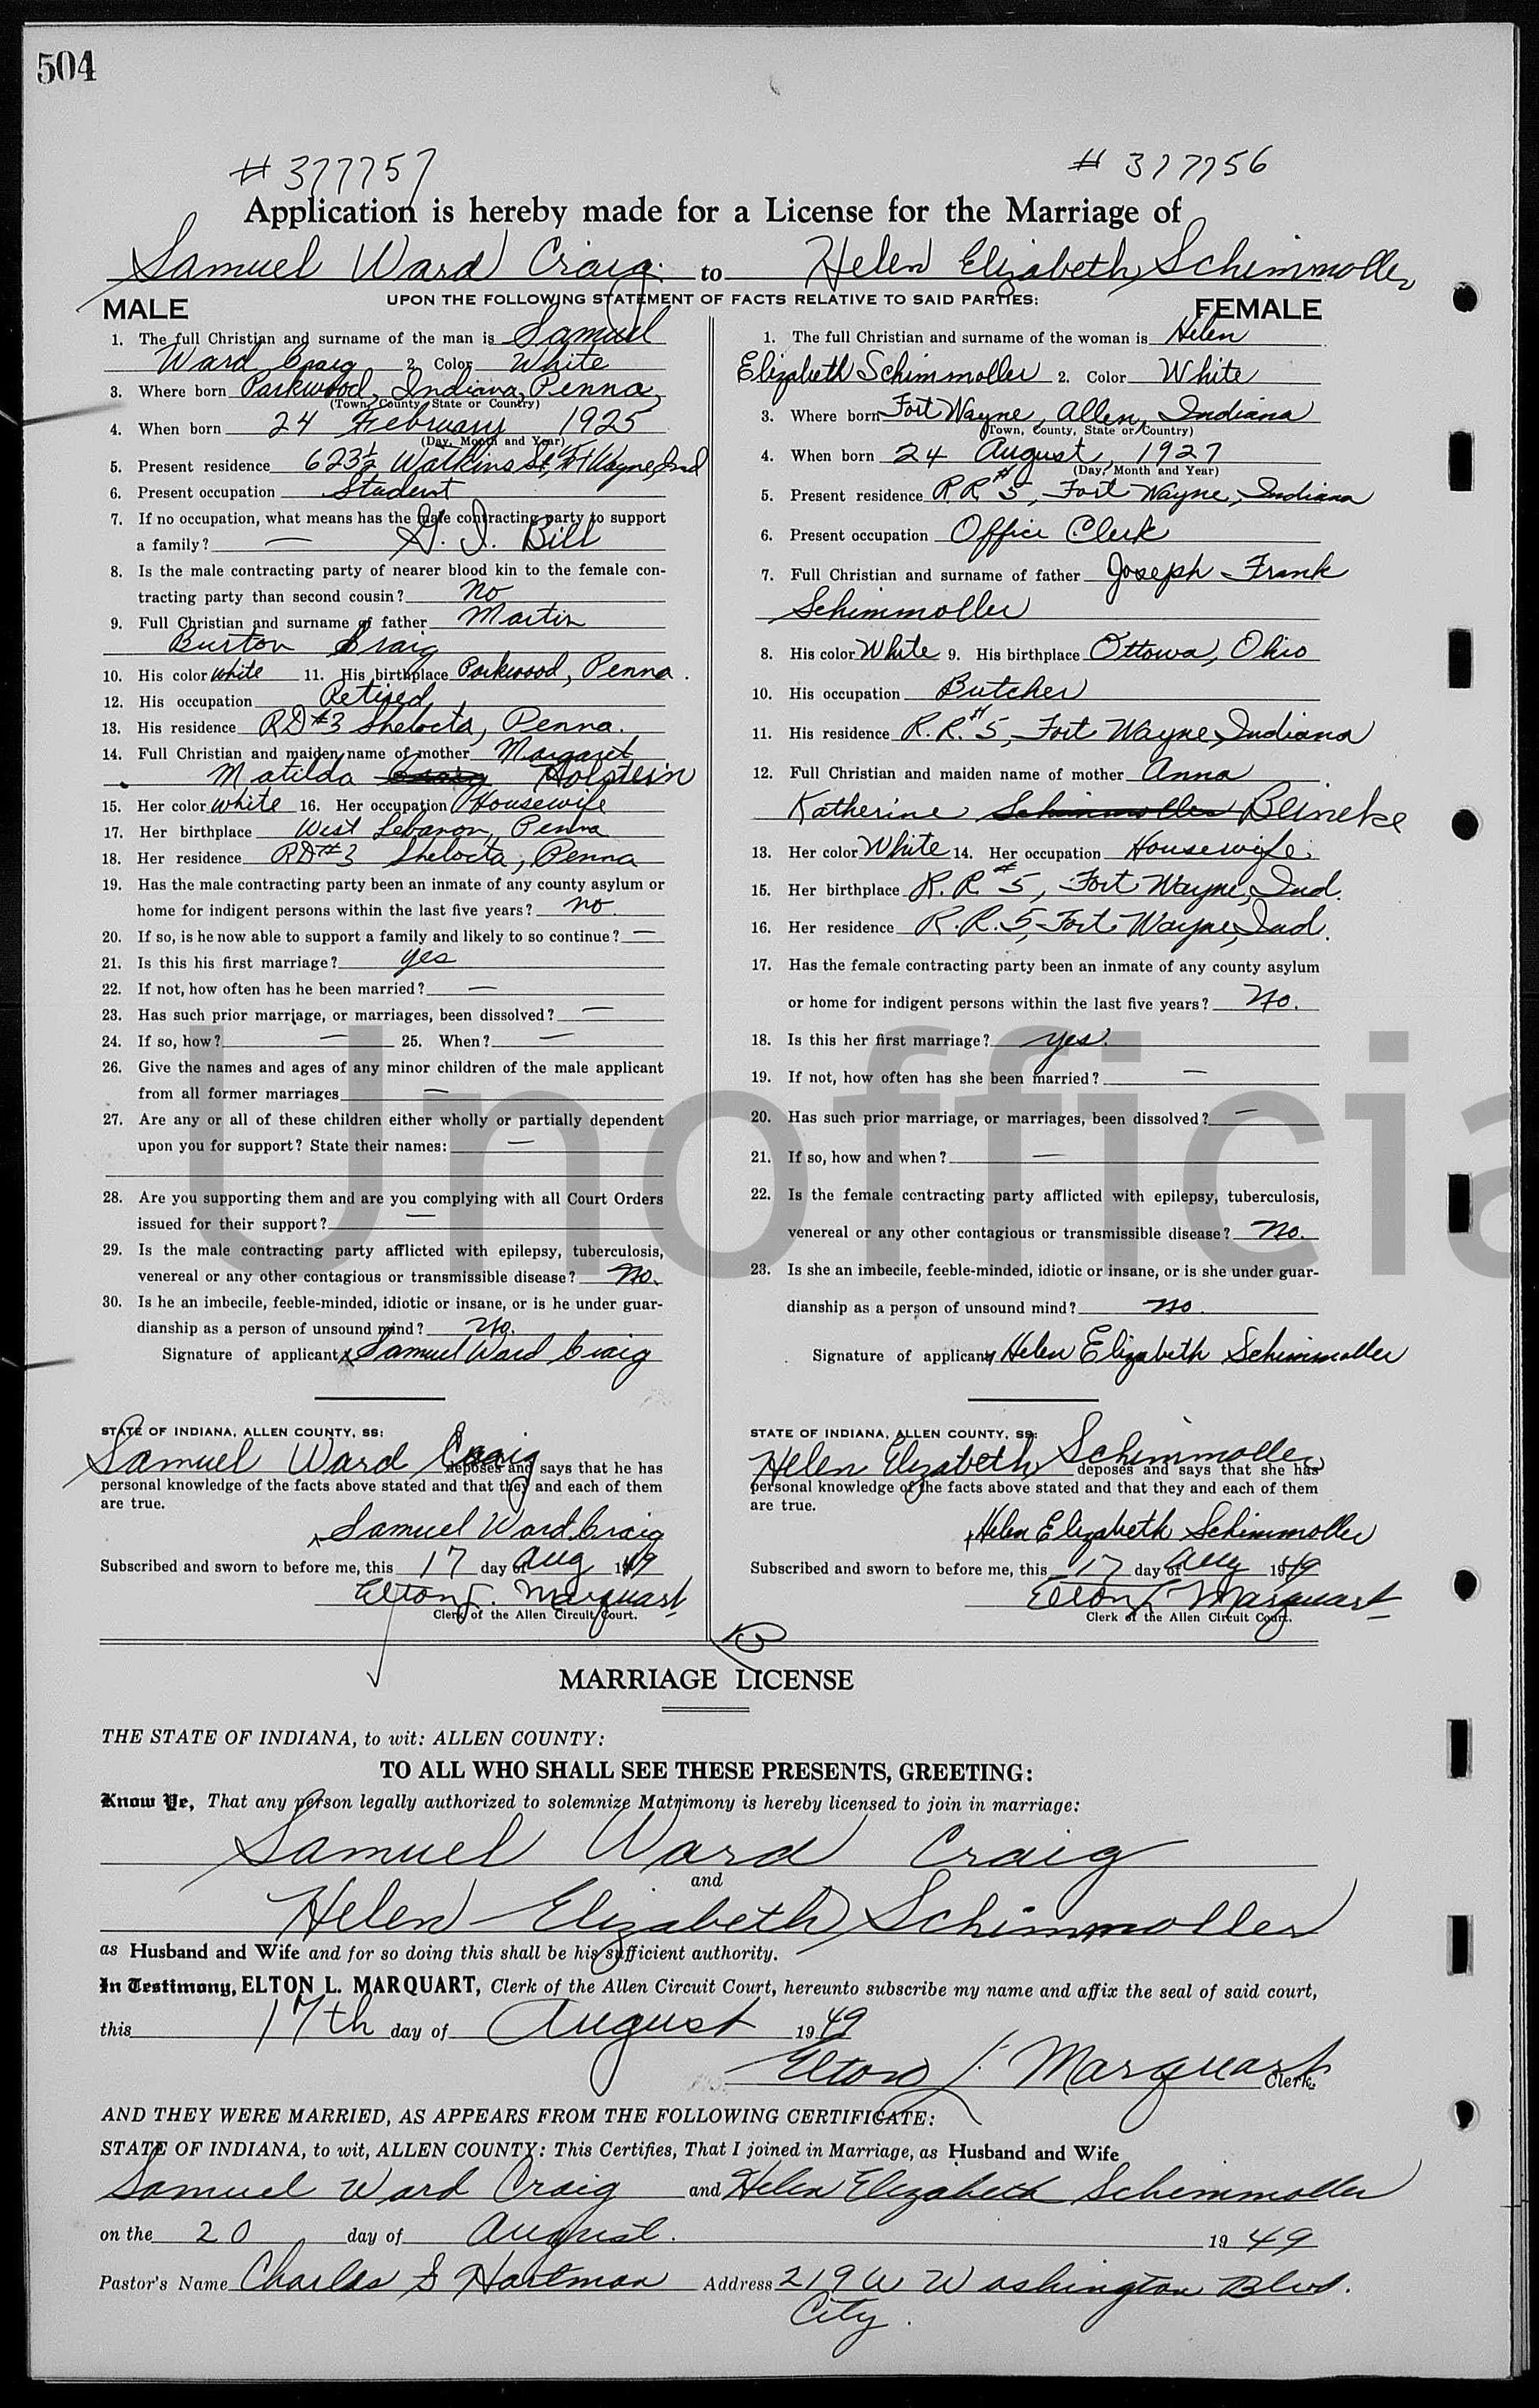 504
# 377757
# 377756
Application is hereby made for a License for the Marriage of
Samuel Ward Craig to Helen Elizabeth Schimmoller
UPON THE FOLLOWING STATEMENT OF FACTS RELATIVE TO SAID PARTIES:
MALE
1. The full Christian and surname of the man is Samuel
Ward Craig 2. Color White
3. Where born Parkwood, Indiana, Penna,
(Town, County, State or Country)
4. When born 24 February 1925
(Day, Month and Year)
5. Present residence 623½ Watkins St, Ft Wayne, Ind
6. Present occupation Student
7. If no occupation, what means has the male contracting party to support
a family? — G. I. Bill
8. Is the male contracting party of nearer blood kin to the female con-
tracting party than second cousin? No
9. Full Christian and surname of father Martin
Burton Craig
10. His color white 11. His birthplace Parkwood, Penna.
12. His occupation Retired
13. His residence RD#3 Shelocta, Penna.
14. Full Christian and maiden name of mother Margaret
Matilda Craig Holstein
15. Her color white 16. Her occupation Housewife
17. Her birthplace West Lebanon, Penna
18. Her residence RD#3 Shelocta, Penna
19. Has the male contracting party been an inmate of any county asylum or
home for indigent persons within the last five years? no.
20. If so, is he now able to support a family and likely to so continue? —
21. Is this his first marriage? yes
22. If not, how often has he been married? —
23. Has such prior marriage, or marriages, been dissolved? —
24. If so, how? — 25. When? —
26. Give the names and ages of any minor children of the male applicant
from all former marriages —
27. Are any or all of these children either wholly or partially dependent
upon you for support? State their names: —
28. Are you supporting them and are you complying with all Court Orders
issued for their support? —
29. Is the male contracting party afflicted with epilepsy, tuberculosis,
venereal or any other contagious or transmissible disease? No.
30. Is he an imbecile, feeble-minded, idiotic or insane, or is he under guar-
dianship as a person of unsound mind? No.
Signature of applicant x Samuel Ward Craig
STATE OF INDIANA, ALLEN COUNTY, SS:
Samuel Ward Craig deposes and says that he has
personal knowledge of the facts above stated and that they and each of them
are true.
x Samuel Ward Craig
Subscribed and sworn to before me, this 17 day of Aug 1949
Elton L. Marquart
Clerk of the Allen Circuit Court.
FEMALE
1. The full Christian and surname of the woman is Helen
Elizabeth Schimmoller 2. Color White
3. Where born Fort Wayne, Allen, Indiana
(Town, County, State or Country)
4. When born 24 August, 1927
(Day, Month and Year)
5. Present residence R.R.#5, Fort Wayne, Indiana
6. Present occupation Office Clerk
7. Full Christian and surname of father Joseph Frank
Schimmoller
8. His color White 9. His birthplace Ottowa, Ohio
10. His occupation Butcher
11. His residence R.R.#5, Fort Wayne, Indiana
12. Full Christian and maiden name of mother Anna
Katherine Schimmoller Beineke
13. Her color White 14. Her occupation Housewife.
15. Her birthplace R.R.#5, Fort Wayne, Ind.
16. Her residence R.R.5, Fort Wayne, Ind.
17. Has the female contracting party been an inmate of any county asylum
or home for indigent persons within the last five years? No.
18. Is this her first marriage? yes.
19. If not, how often has she been married? —
20. Has such prior marriage, or marriages, been dissolved? —
21. If so, how and when? —
22. Is the female contracting party afflicted with epilepsy, tuberculosis,
venereal or any other contagious or transmissible disease? No.
23. Is she an imbecile, feeble-minded, idiotic or insane, or is she under guar-
dianship as a person of unsound mind? no.
Signature of applicant x Helen Elizabeth Schimmoller
STATE OF INDIANA, ALLEN COUNTY, SS:
Helen Elizabeth Schimmoller deposes and says that she has
personal knowledge of the facts above stated and that they and each of them
are true.
x Helen Elizabeth Schimmoller
Subscribed and sworn to before me, this 17 day of Aug 1949
Elton L. Marquart
Clerk of the Allen Circuit Court.
Unofficia
MARRIAGE LICENSE
THE STATE OF INDIANA, to wit: ALLEN COUNTY:
TO ALL WHO SHALL SEE THESE PRESENTS, GREETING:
Know Ye, That any person legally authorized to solemnize Matrimony is hereby licensed to join in marriage:
Samuel Ward Craig
and
Helen Elizabeth Schimmoller
as Husband and Wife and for so doing this shall be his sufficient authority.
In Testimony, ELTON L. MARQUART, Clerk of the Allen Circuit Court, hereunto subscribe my name and affix the seal of said court,
this 17th day of August 1949
Elton L. Marquart Clerk.
AND THEY WERE MARRIED, AS APPEARS FROM THE FOLLOWING CERTIFICATE:
STATE OF INDIANA, to wit, ALLEN COUNTY: This Certifies, That I joined in Marriage, as Husband and Wife
Samuel Ward Craig and Helen Elizabeth Schimmoller
on the 20 day of August. 1949
Pastor's Name Charles S Hartman Address 219 W Washington Blvd.
City.